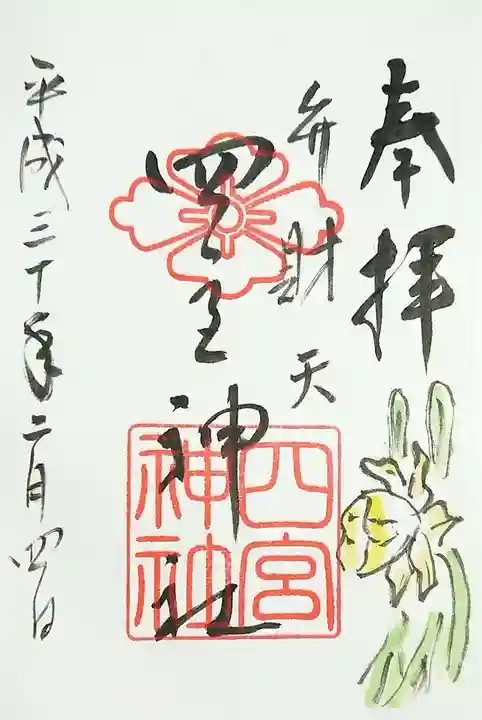 奉拝
弁財天
四宮神社
四宮神社
平成三十年二月四日